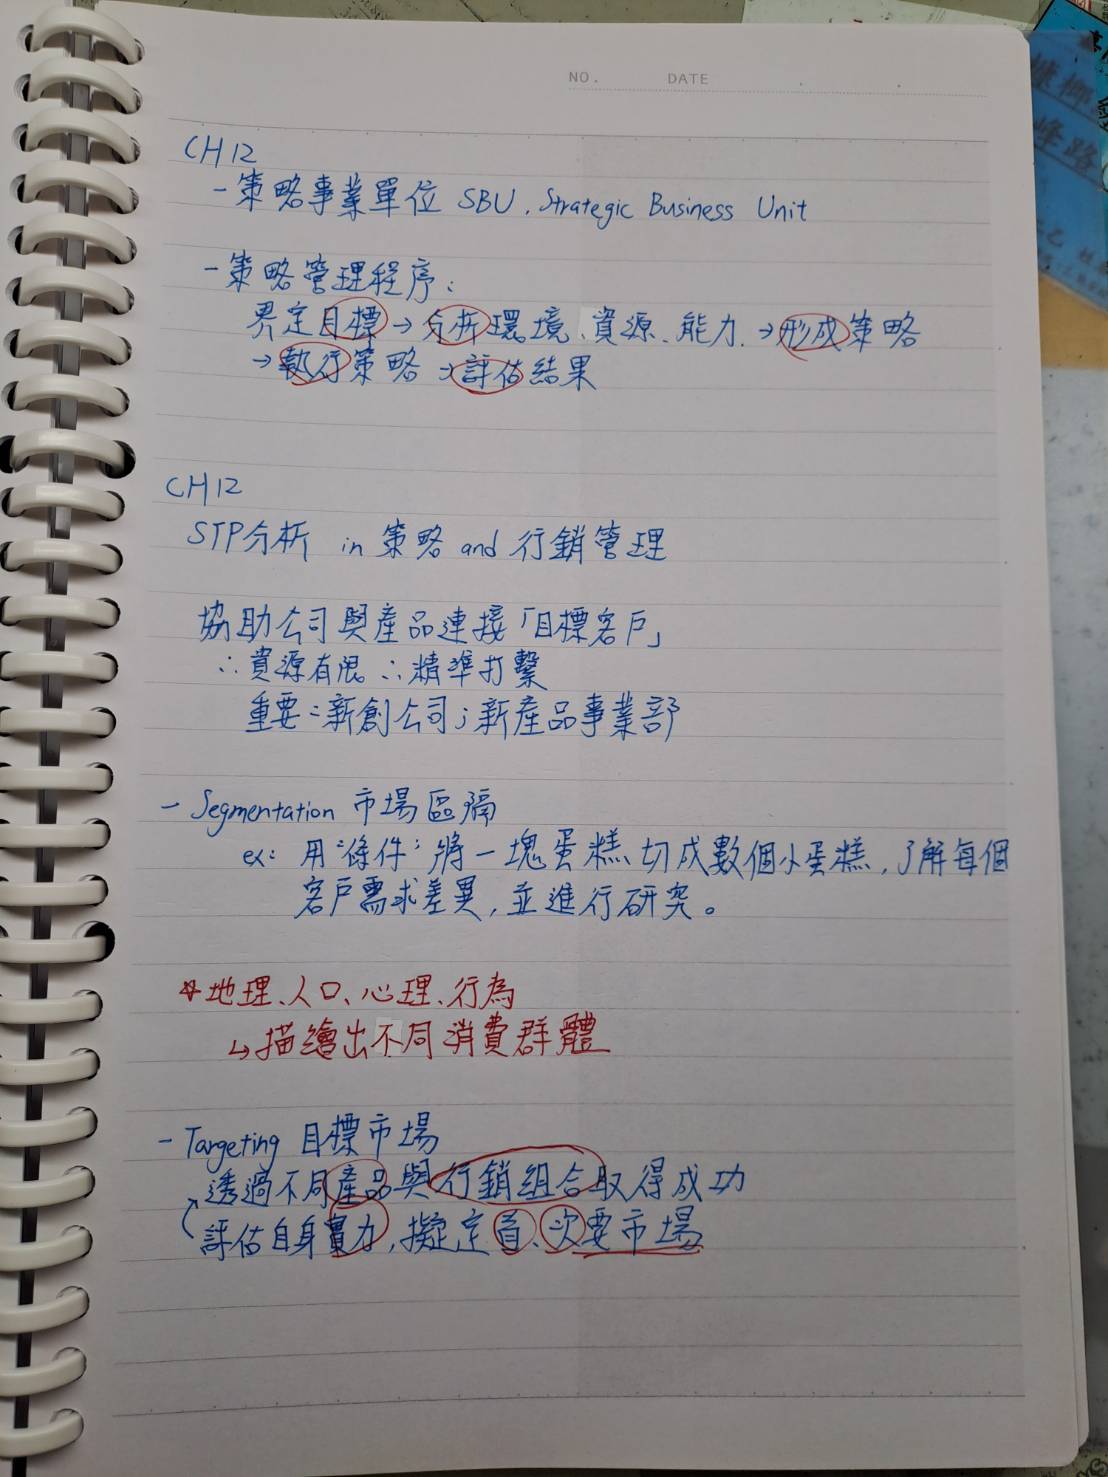 NO. DATE
CH12
- 策略事業單位 SBU, Strategic Business Unit
- 策略管理程序:
界定目標 → 分析環境、資源、能力 → 形成策略
→ 執行策略 → 評估結果
CH12
STP分析 in 策略 and 行銷管理
協助公司與產品連接「目標客戶」
∵資源有限 ∴精準打擊
重要:新創公司;新產品事業部
- Segmentation 市場區隔
ex: 用"條件"將一塊蛋糕切成數個小蛋糕,了解每個
客戶需求差異,並進行研究。
*地理、人口、心理、行為
↳描繪出不同消費群體
- Targeting 目標市場
透過不同產品與行銷組合取得成功
評估自身實力,擬定首、次要市場
峰路